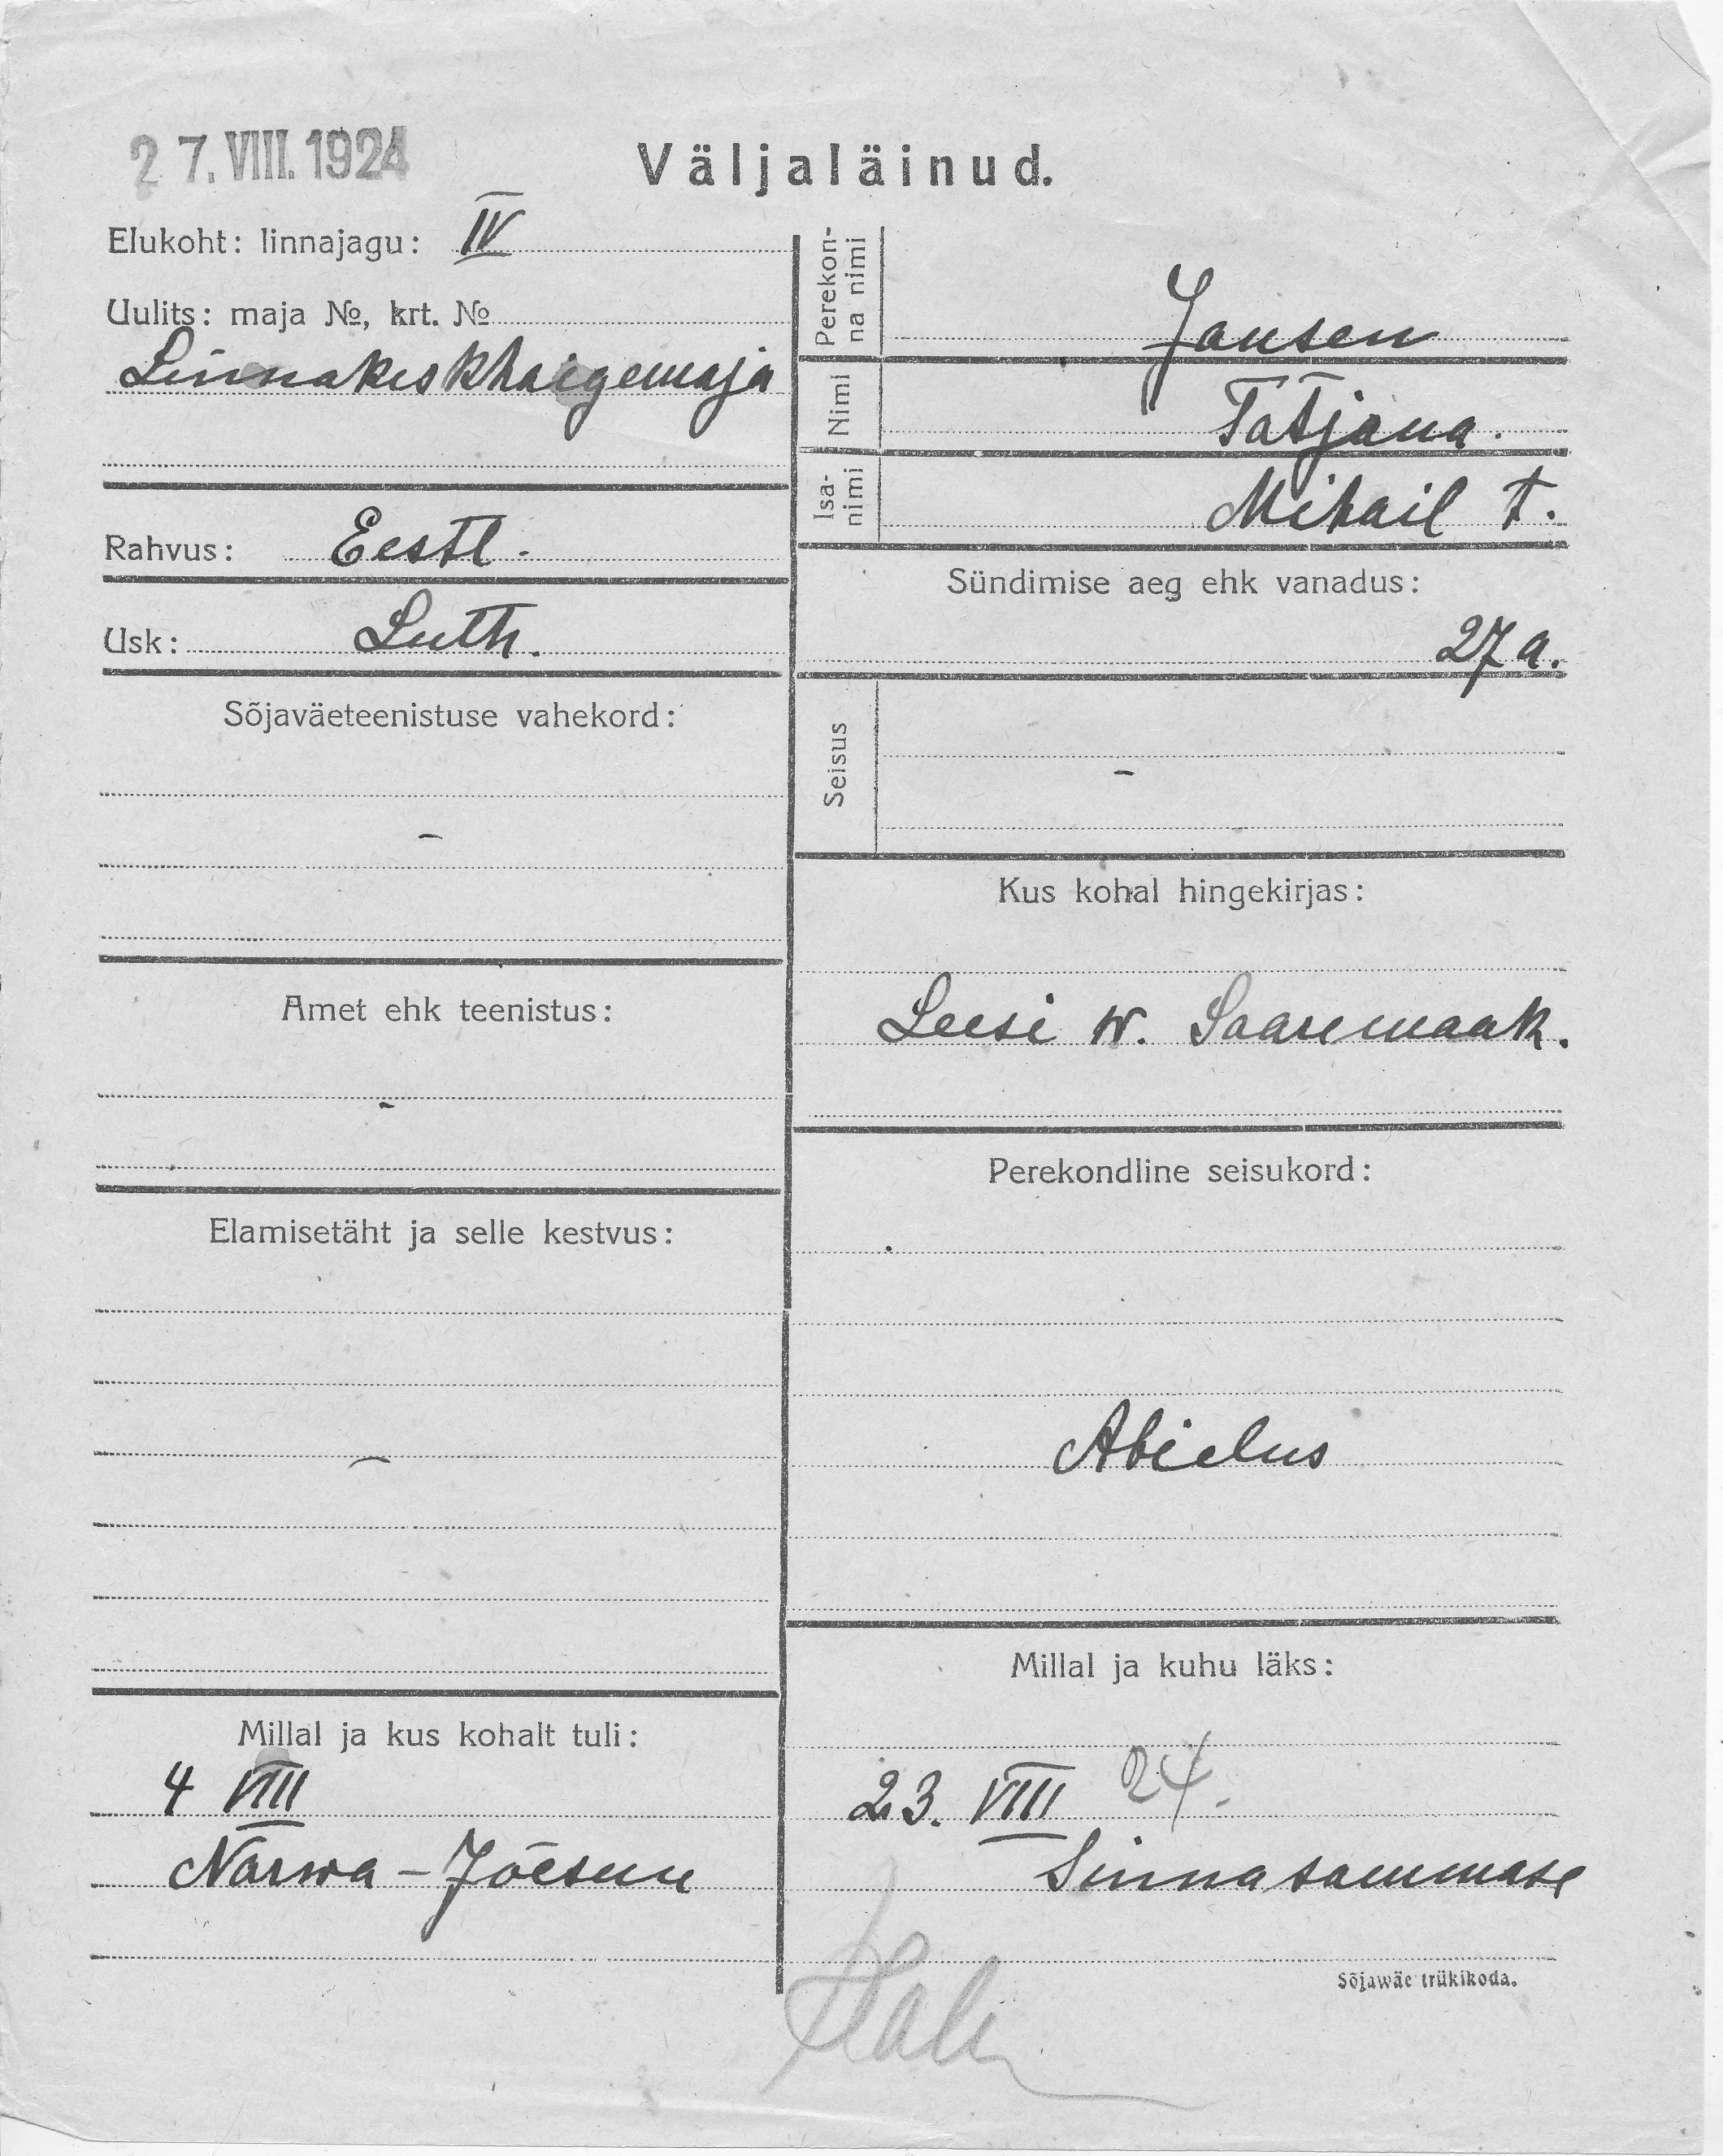 27. VIII. 1924
Väljaläinud.
Elukoht: linnajagu: IV
Uulits: maja №, krt. №
Linnakeskhaigemaja
Rahvus: Eestl.
Usk: Luth.
Sõjaväeteenistuse vahekord:
-
Amet ehk teenistus:
-
Elamisetäht ja selle kestvus:
-
Millal ja kus kohalt tuli:
4 VIII
Narwa-Jõesuu
Perekon-
na nimi
Jansen
Nimi
Tatjana.
Isa-
nimi
Mihail t.
Sündimise aeg ehk vanadus:
27 a.
Seisus
-
Kus kohal hingekirjas:
Leesi w. Saaremaak.
Perekondline seisukord:
Abielus
Millal ja kuhu läks:
23. VIII 24.
Linna sammase
Sõjawäe trükikoda.